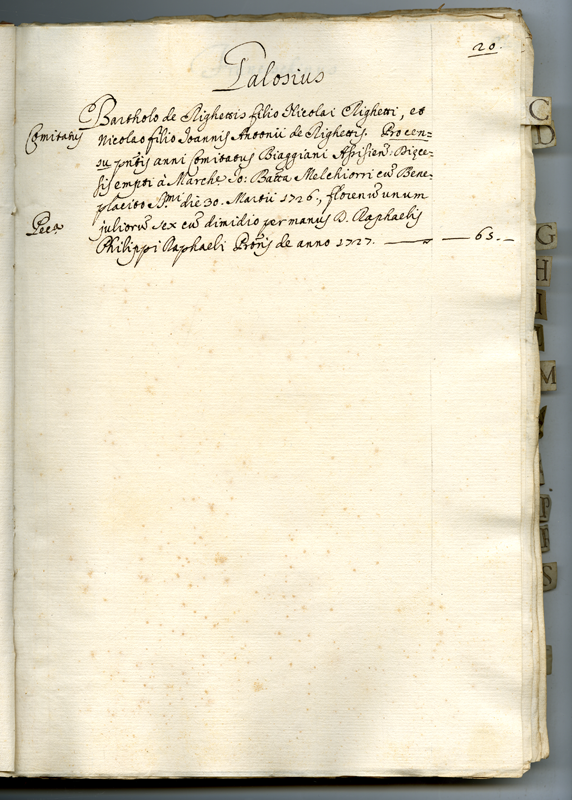 20.
Palosius
Bartholo de Righettis filio Nicolai Righetti, et
Comitatus Nicolao filio Joannis Antonii de Righettis. Pro cen=
su pntis anni Comitatus Biaggiani Assisien: Diœce=
sis empti à March: Jo: Batta Melchiorri cū Bene=
placito die 30. Martii 1726., florenū unum
juliorū sex cū dimidio per manus D. Raphaelis
Philippi Raphaeli de anno 1727. — 65. —
C
D
G
H
I
M
P
S